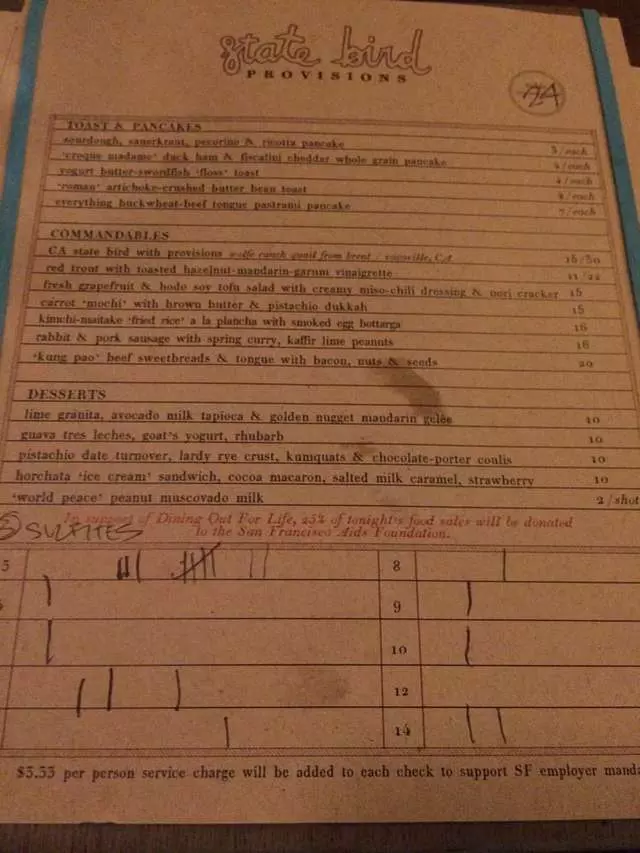 state bird
PROVISIONS
24
TOAST & PANCAKES
sourdough, sauerkraut, pecorino & ricotta pancake 3/each
'croque madame' duck ham & fiscalini cheddar whole grain pancake 4/each
yogurt butter-swordfish 'floss' toast 4/each
'roman' artichoke-crushed butter bean toast 4/each
everything buckwheat-beef tongue pastrami pancake 7/each
COMMANDABLES
CA state bird with provisions wolfe ranch quail from brent / vacaville, CA 16/30
red trout with toasted hazelnut-mandarin-garum vinaigrette 11/22
fresh grapefruit & hodo soy tofu salad with creamy miso-chili dressing & nori cracker 15
carrot 'mochi' with brown butter & pistachio dukkah 15
kimchi-maitake 'fried rice' a la plancha with smoked egg bottarga 16
rabbit & pork sausage with spring curry, kaffir lime peanuts 18
'kung pao' beef sweetbreads & tongue with bacon, nuts & seeds 20
DESSERTS
lime granita, avocado milk tapioca & golden nugget mandarin gelée 10
guava tres leches, goat's yogurt, rhubarb 10
pistachio date turnover, lardy rye crust, kumquats & chocolate-porter coulis 10
horchata 'ice cream' sandwich, cocoa macaron, salted milk caramel, strawberry 10
'world peace' peanut muscovado milk 2/shot
In support of Dining Out For Life, 25% of tonight's food sales will be donated
to the San Francisco Aids Foundation.
SULFITES
8
9
10
12
14
$3.33 per person service charge will be added to each check to support SF employer manda